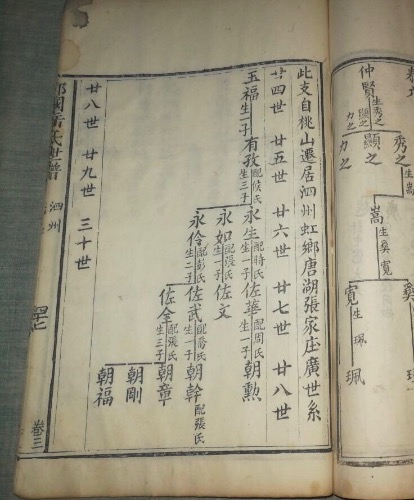 此支自桃山遷居泗州虹鄉唐湖張家庄廣世系
廿四世 廿五世 廿六世 廿七世 廿八世
玉福生一子有孜配侯氏生三子永生配時氏生一子佐華配周氏生一子朝勲
永如配張氏生一子佐文
永伶配彭氏生二子佐武配喬氏生一子朝幹配張氏
佐全配張氏生三子朝章
朝剛
朝福
廿八世 廿九世 三十世
泗州
卷三
仲賢生秀之顯之力之
秀之生嵩
顯之
力之
嵩生奭寬
寬生珮
珮